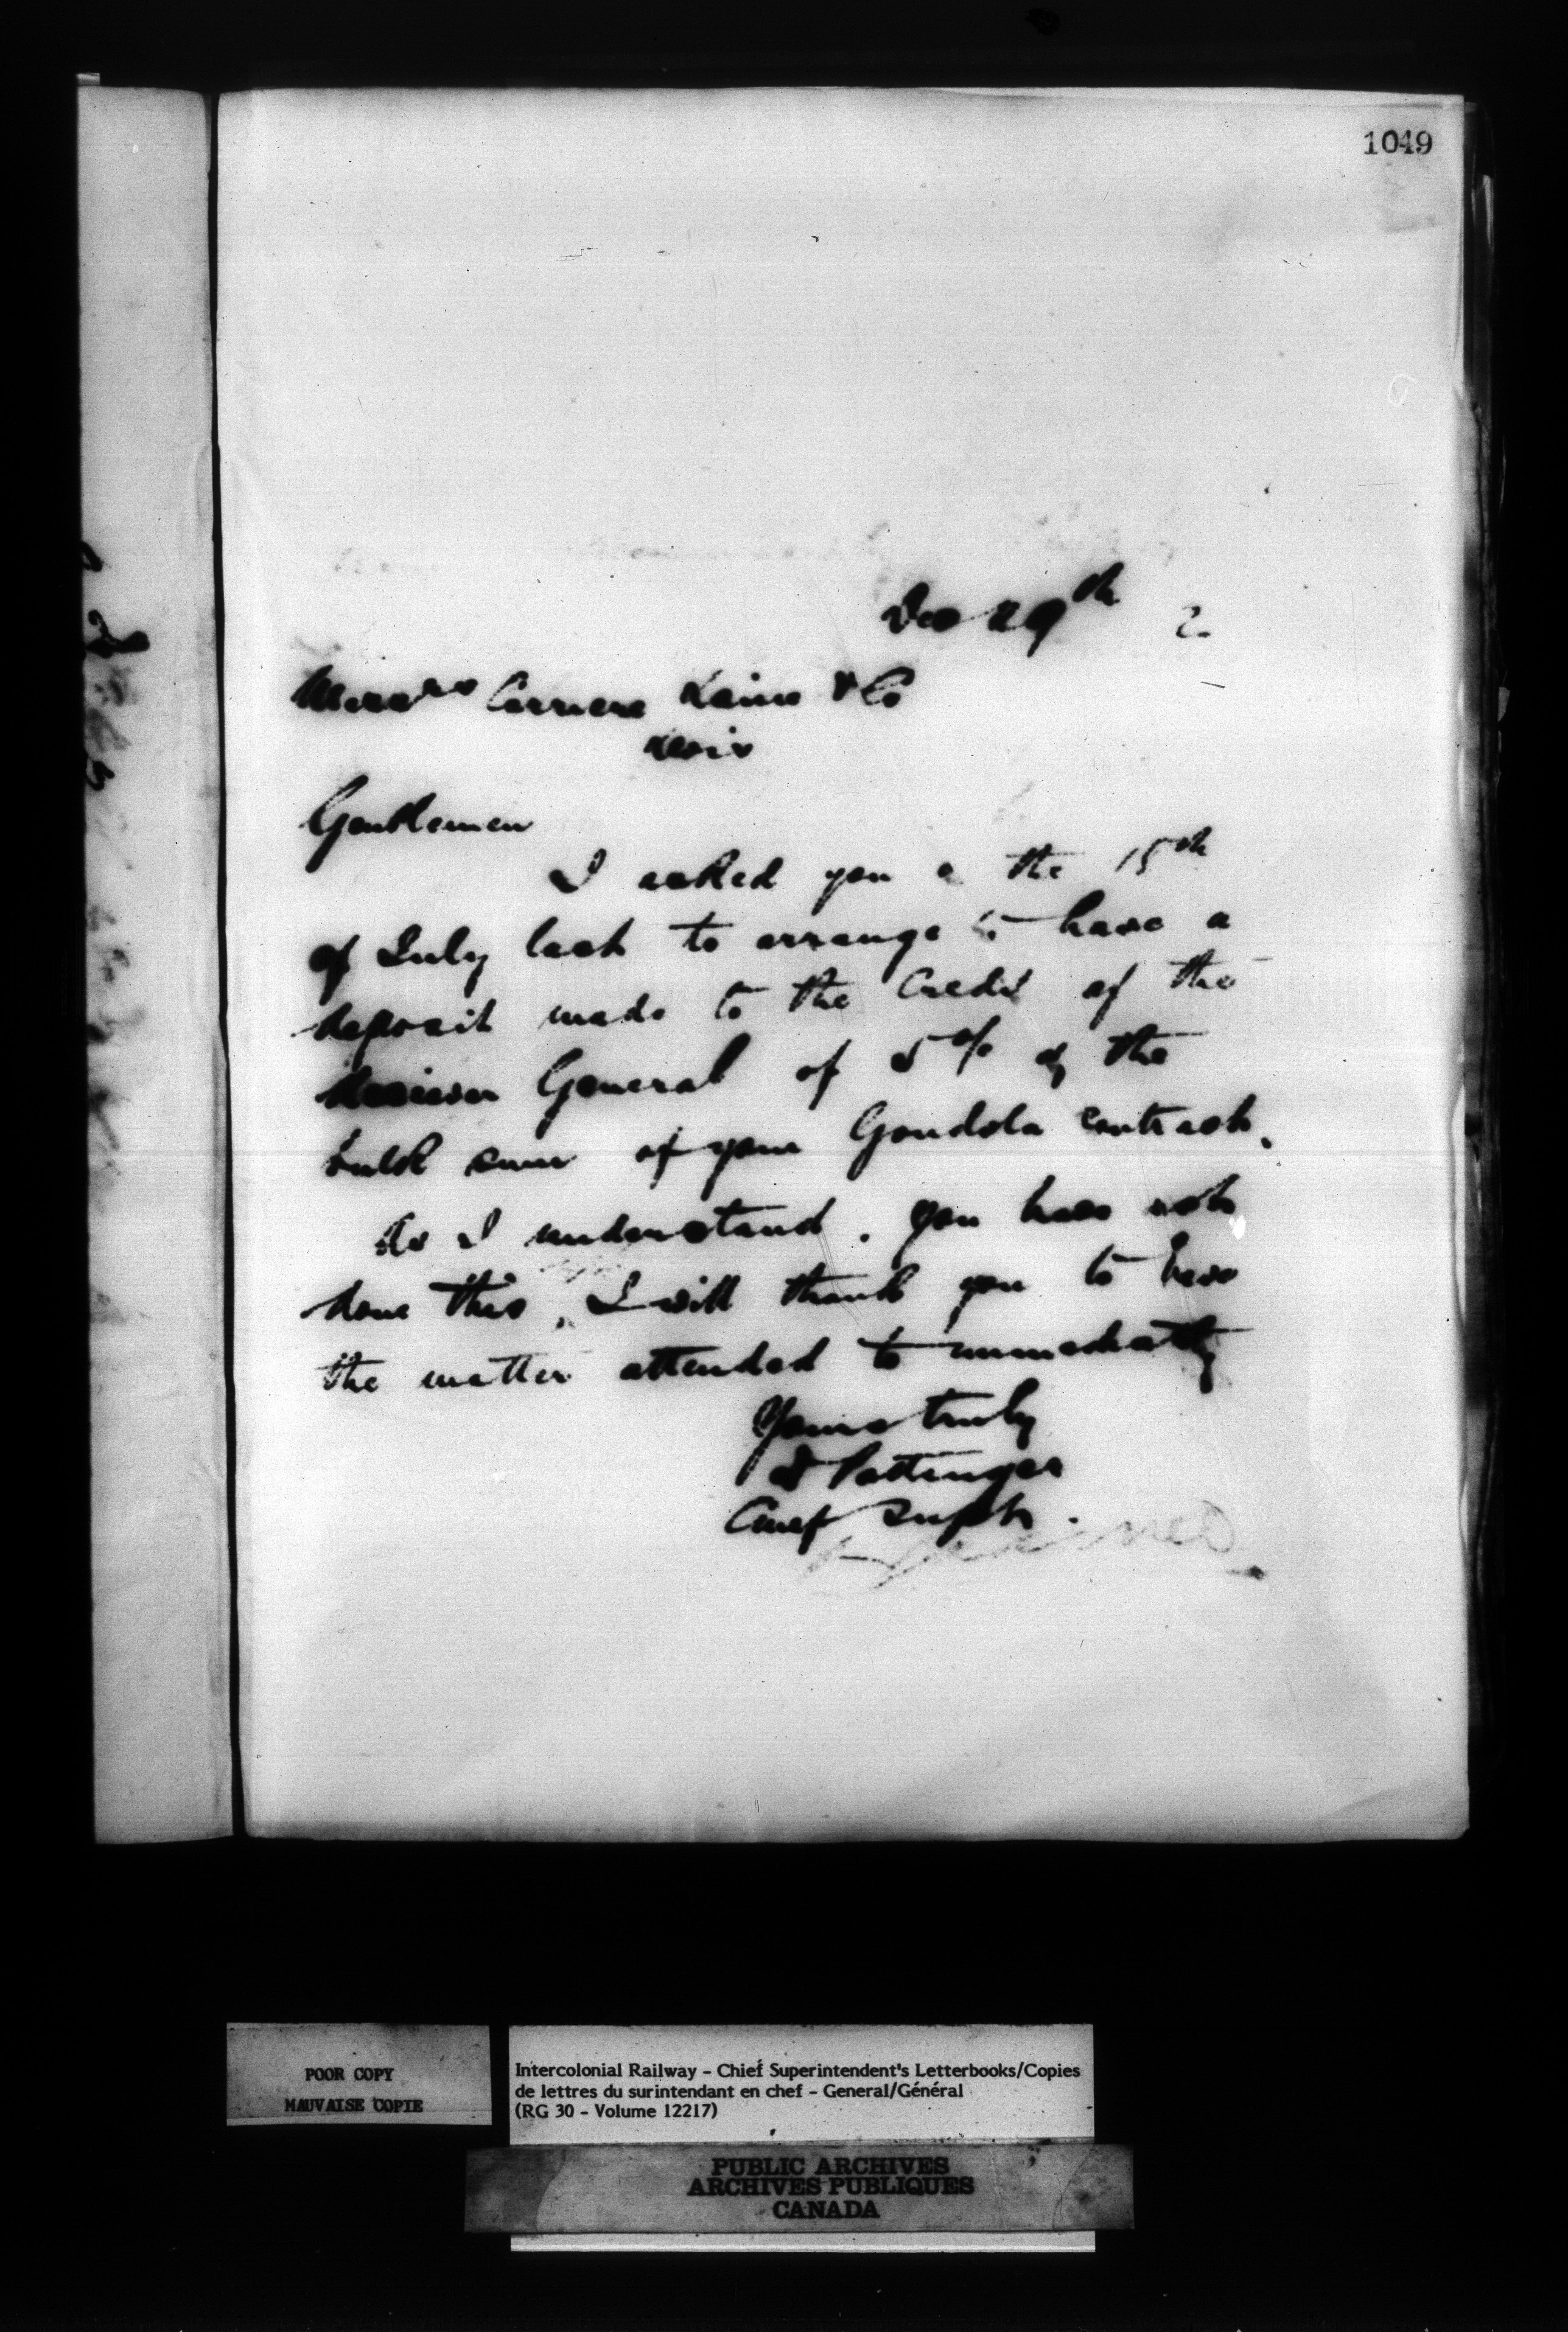 1049
Dec 29th 2
Messrs Carriere Laine & Co
Levis
Gentlemen
I asked you on the 15th
of July last to arrange to have a
deposit made to the Credit of the
Receiver General of 5% of the
bulk sum of your Gondola contract.
As I understand, you have not
done this, I will thank you to have
the matter attended to immediately
Yours truly
D Pottinger
Chief Supt.
POOR COPY
MAUVAISE COPIE
Intercolonial Railway - Chief Superintendent's Letterbooks/Copies
de lettres du surintendant en chef - General/Général
(RG 30 - Volume 12217)
PUBLIC ARCHIVES
ARCHIVES PUBLIQUES
CANADA